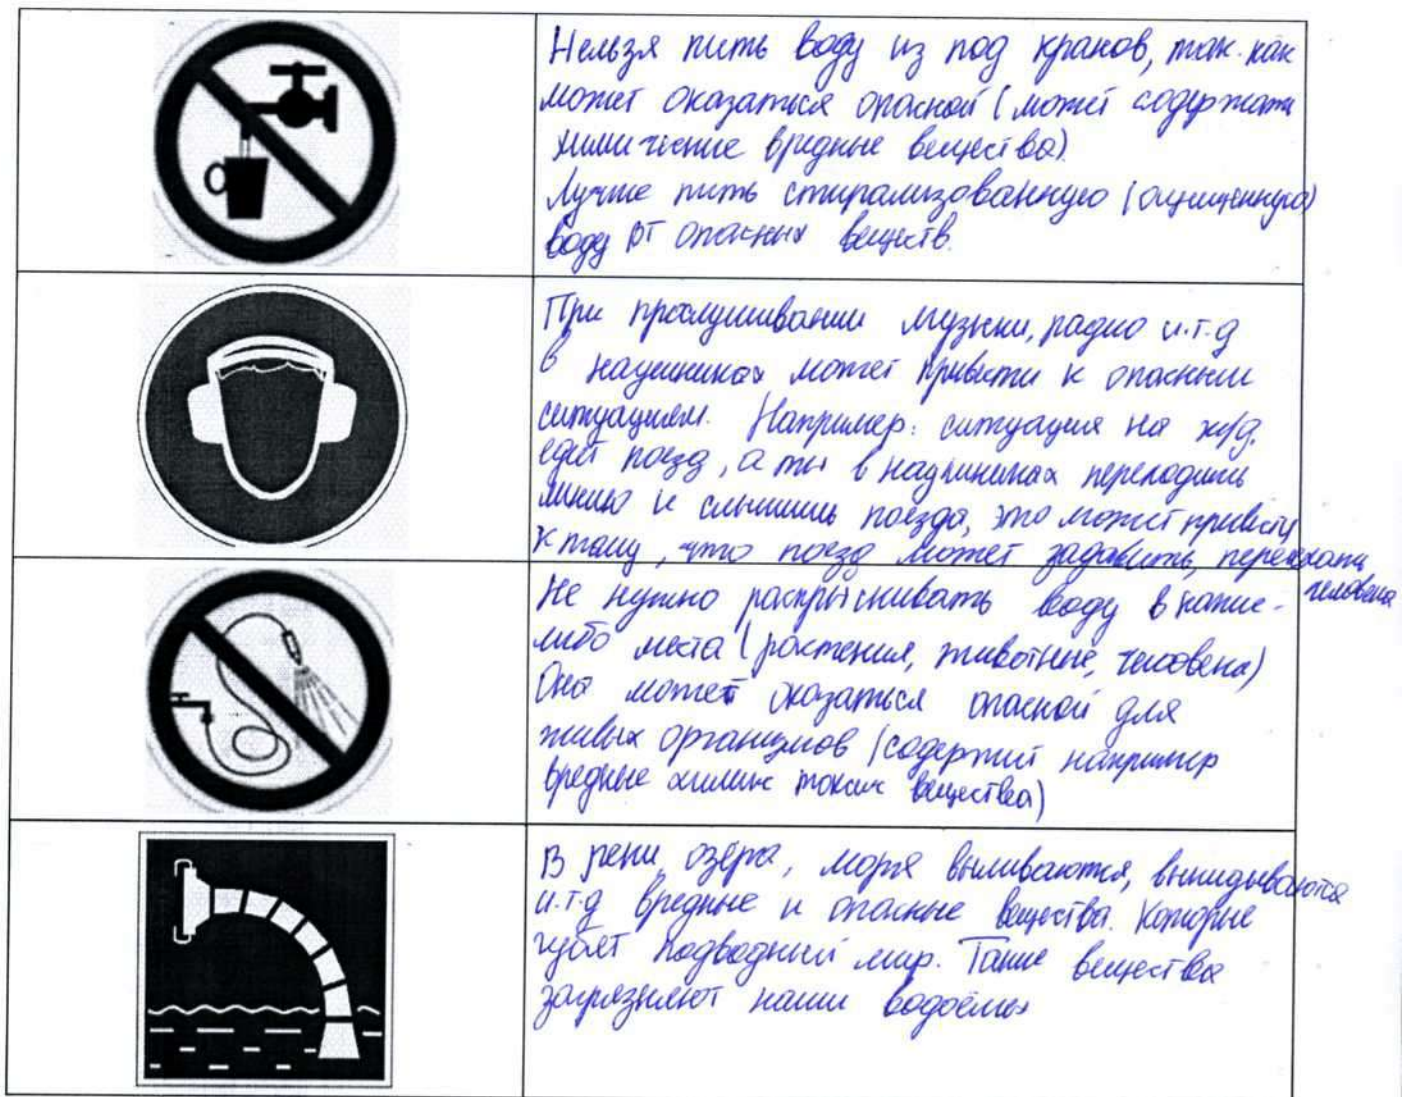 Нельзя пить воду из под кранов, так как
может оказаться опасной (может содержать
химические вредные вещества).
Лучше пить стирализованную (очищенную)
воду от опасных веществ.
При прослушивании музыки, радио и.т.д
в наушниках может привести к опасным
ситуациям. Например: ситуация на ж/д.
едет поезд, а ты в наушниках переходишь
линию и слышишь поезда, это может привести
к тому, что поезд может задавить, переехать
человека
Не нужно распрыскивать воду в какие-
либо места (растения, животные, человека)
Она может оказаться опасной для
живых организмов (содержит например
вредные химич токсич вещества)
В реки, озёра, моря выливаются, выкидываются
и.т.д вредные и опасные вещества. Которые
губят подводный мир. Такие вещества
загрязняют наши водоёмы